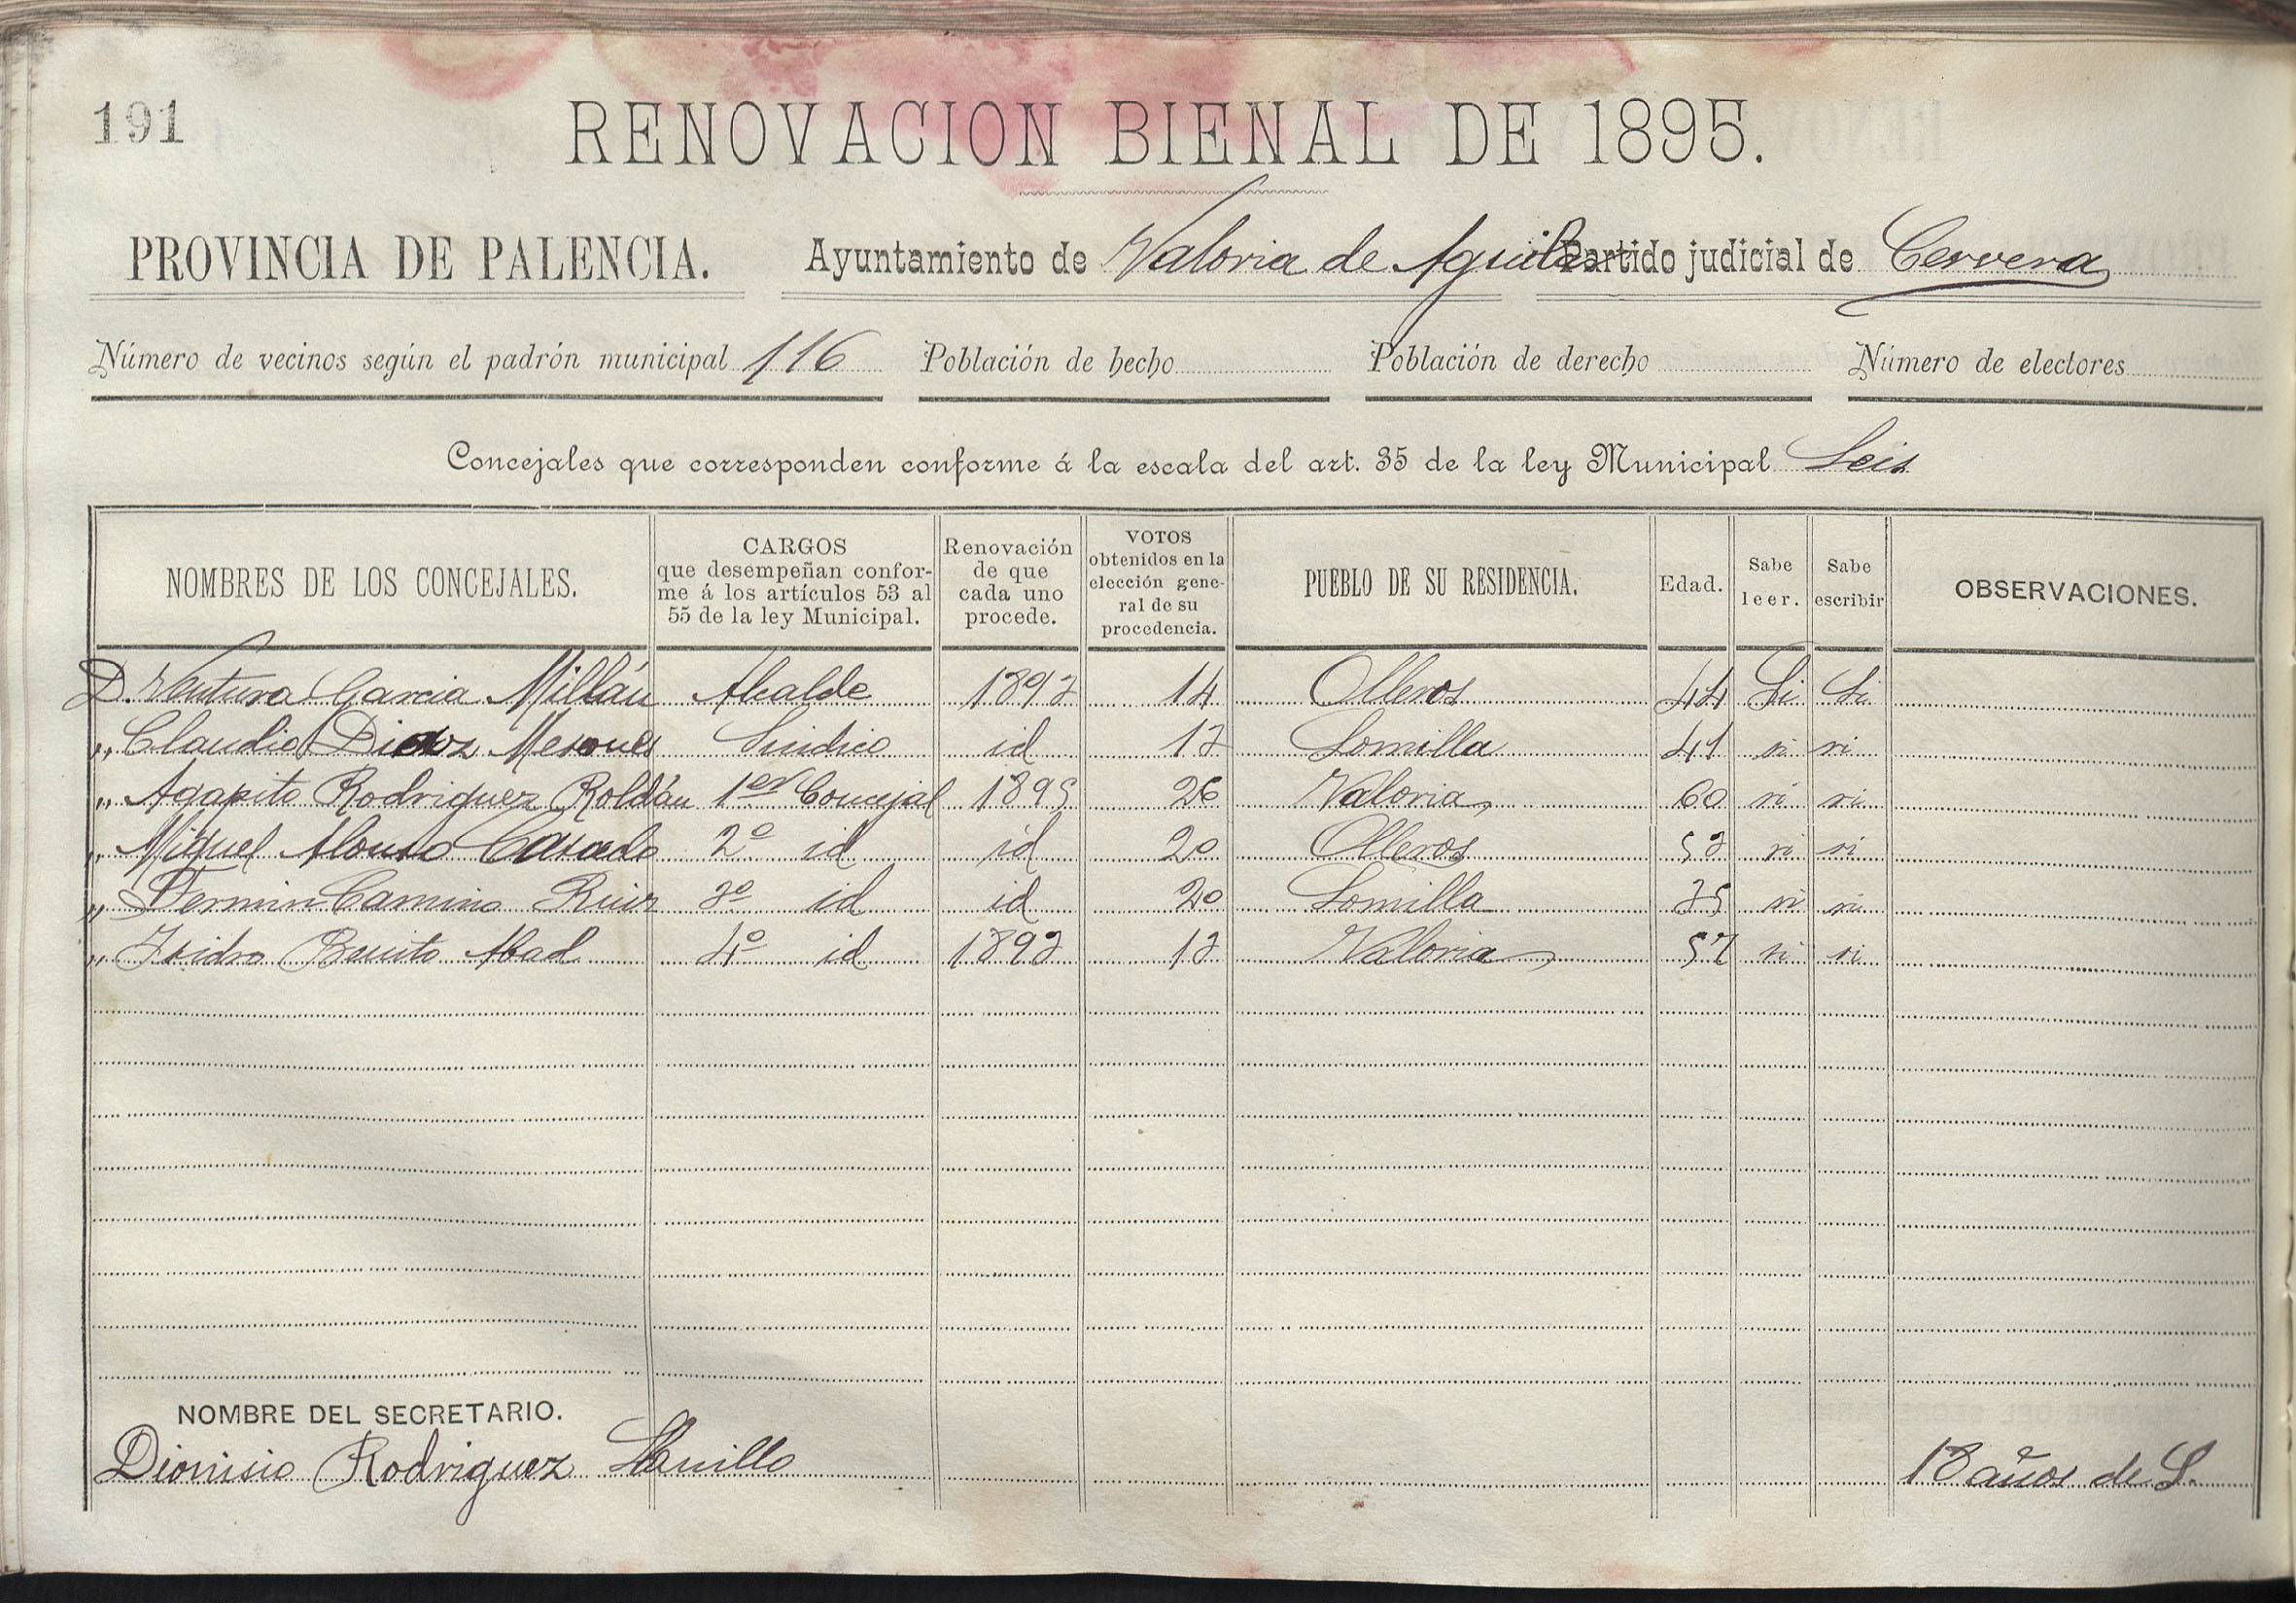 191
RENOVACION BIENAL DE 1895.
PROVINCIA DE PALENCIA. Ayuntamiento de Valoria de Aguilar Partido judicial de Cervera
Número de vecinos según el padrón municipal 116 Población de hecho Población de derecho Número de electores
Concejales que corresponden conforme á la escala del art. 35 de la ley Municipal Seis
NOMBRES DE LOS CONCEJALES.
CARGOS
que desempeñan confor-
me á los artículos 53 al
55 de la ley Municipal.
Renovación
de que
cada uno
procede.
VOTOS
obtenidos en la
elección gene-
ral de su
procedencia.
PUEBLO DE SU RESIDENCIA.
Edad.
Sabe
leer.
Sabe
escribir
OBSERVACIONES.
D. Ventura Garcia Millán Alcalde 1893 14 Olleros 44 Si Si
„ Claudio Sindico id 13 Lomilla 41 si si
„ Agapito Rodriguez Roldán 1er Concejal 1895 26 Valoria 60 si si
„ Miguel Alonso 2º id id 20 Olleros 53 si si
„ Fermin Camino Ruiz 3º id id 20 Lomilla 35 si si
„ Isidro Benito Abad 4º id 1893 13 Valoria 57 si si
NOMBRE DEL SECRETARIO.
Dionisio Rodriguez Llanillo 18 años de S.